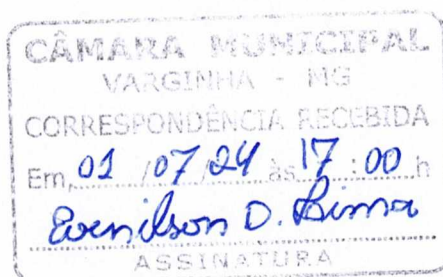 CÂMARA MUNICIPAL
VARGINHA - MG
CORRESPONDÊNCIA RECEBIDA
Em, 01 / 07 / 24 às 17 : 00 h
Evenilson D. Lima
ASSINATURA